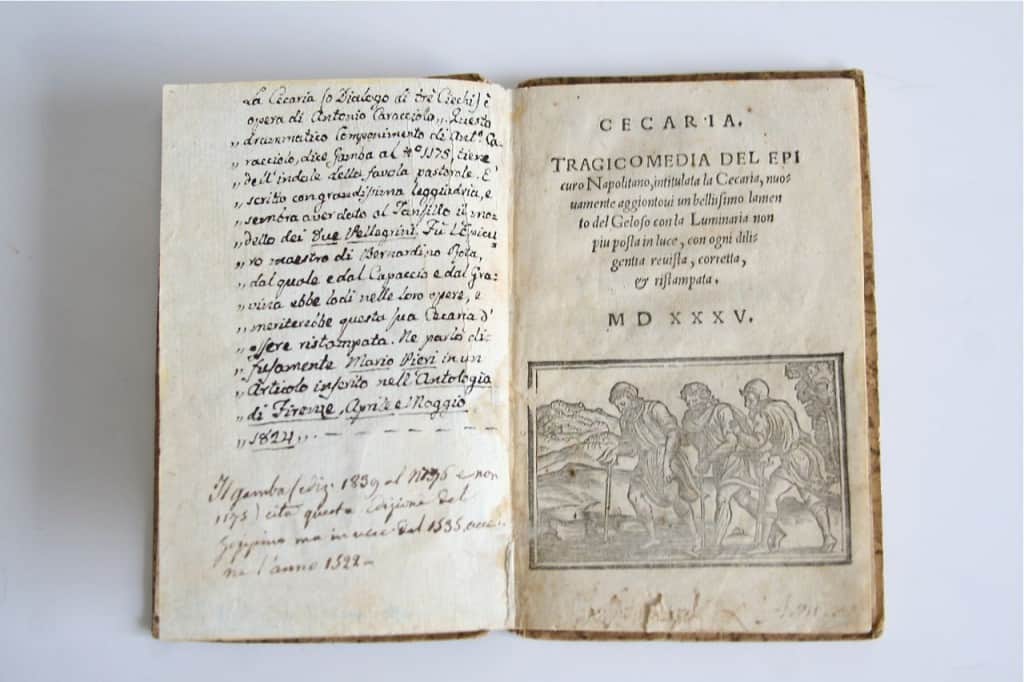 La Cecaria (o Dialogo di trè Ciechi) è
opera di Antonio Caracciolo „. Questo
„ drammatico Componimento di Ant.º Ca-
„ racciolo, dice Gamba al Nº 1175, tiene
„ dell'indole della favola pastorale. È
„ scritto con grandissima leggiadria, e
„ sembra aver dato al Tansillo il mo-
„ dello dei Due Pellegrini. Fù l'Epicu-
„ ro maestro di Bernardino Rota,
„ dal quale e dal Capaccio e dal Gra-
„ vina ebbe lodi nelle loro opere, e
„ meriterebbe questa sua Cecaria d'
„ essere ristampata. Ne parlò dif-
„ fusamente Mario Pieri in un
„ Articolo inserito nell'Antologia
„ di Firenze, Aprile e Maggio
„ 1824 „.
Il Gamba (ediz. 1839 al N
1175) cita questa edizione del
ma in vece del 1535,
l'anno 1522 -
CECARIA.
TRAGICOMEDIA DEL EPI
curo Napolitano, intitulata la Cecaria, nuo-
uamente aggiontoui un bellissimo lamen
to del Geloso con la Luminaria non
piu posta in luce, con ogni dili-
gentia reuista, corretta,
& ristampata.
M D XXXV.